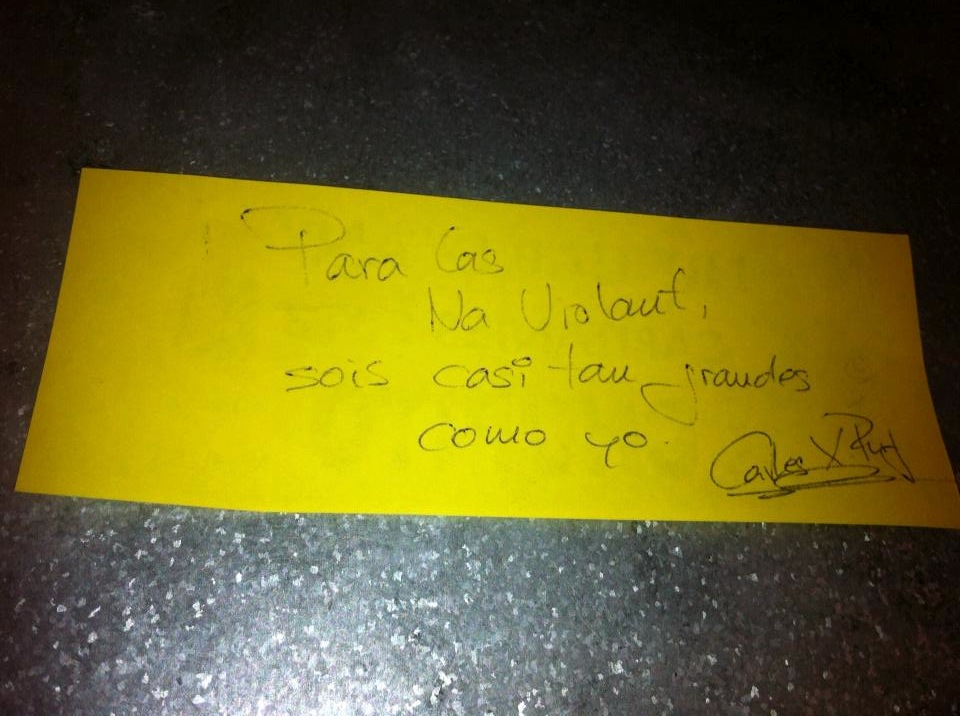 Para Las
Na Violant,
sois casi tan grandes
como yo.
Carles X Puig